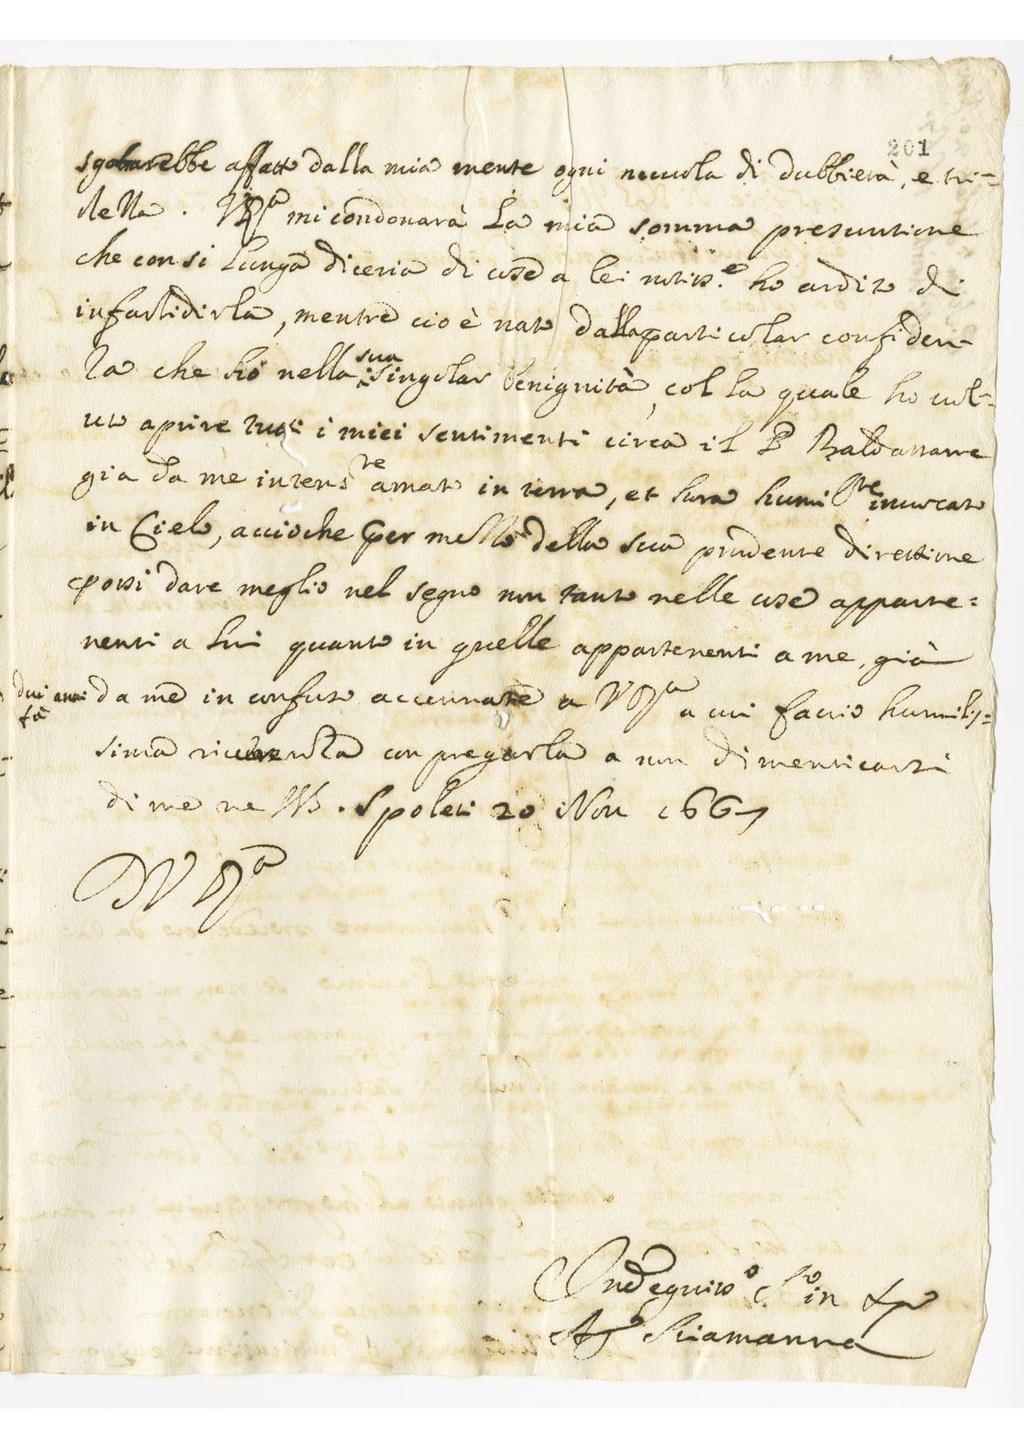 201
sgobrarebbe affatto dalla mia mente ogni nuvola di dubbietà, e tri=
stezza. VRa mi condonarà la mia somma presuntione
che con si lunga diceria di cose a lei notiss.e ho ardito di
infastidirla, mentre cio è nato dalla particolar confiden-
za che hò nella sua singolar benignità, col la quale ho vol=
uto aprire tutti i miei sentimenti circa il P Baldassarre
gia da me intens.te amato in terra, et hora humil.te invocato
in Cielo, accioche per mezzo della sua prudente direttione
possi dare meglio nel segno non tanto nelle cose apparte=
nenti a lui quanto in quelle appartenenti a me, già
dui anni fa
da me in confuso accennate a VRa a cui faccio humilis=
sima riverenza con pregarla a non dimenticarsi
di me ne SS. Spoleti 20 Nov 1667
DVRa
Indegniss.o S.o in Xpo
Sciamanna